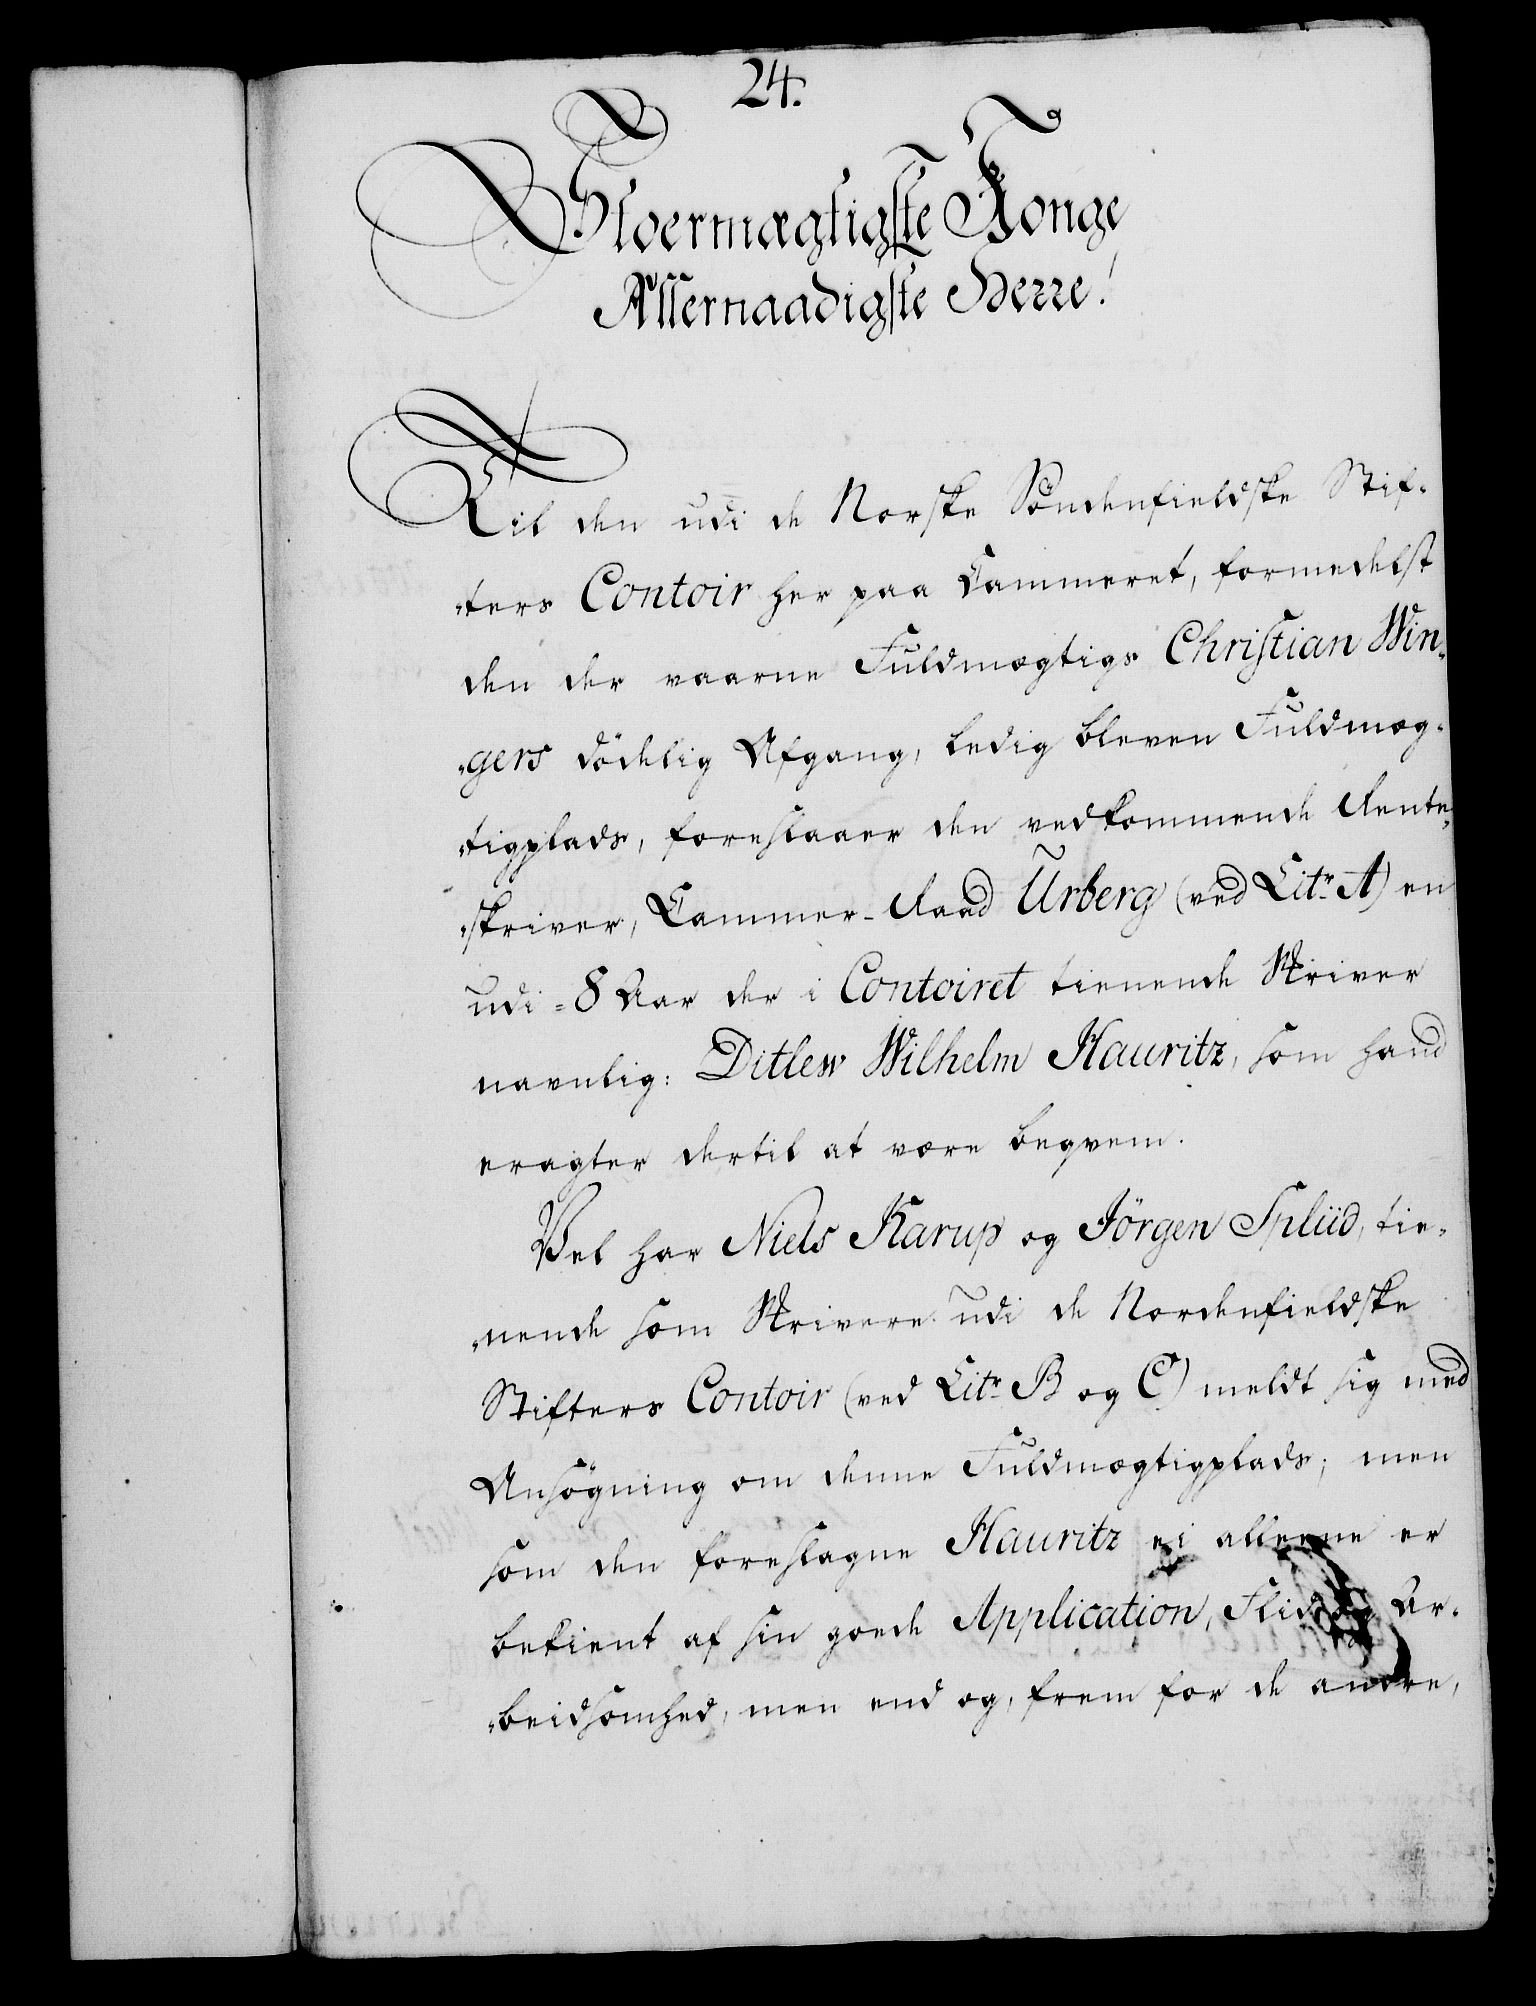 24.
Stoermægtigste Konge
Allernaadigste Herre!
Til den udi de Norske Söndenfieldske Stif-
-ters Contoir her paa Cammeret, formedelst
den der vaarne Fuldmægtigs Christian Win-
-gers dödelig Afgang, ledig bleven Fuldmæg-
-tigplads, foreslaaer den vedkommende Rente-
-skriver, Cammer-Raad Urberg (ved Litr. A) en
udi 8 Aar der i Contoiret tienende Skriver
navnlig: Ditlew Wilhelm Hauritz, som hand
eragter dertil at være beqvem.
Vel har Niels Karup og Jörgen Splüd, tie-
-nende som Skrivere udi de Nordenfieldske
Stifters Contoir (ved Litr. B og C) meldt sig med
Ansögning om denne Fuldmægtigplads; men
som den foreslagne Hauritz ei alleene er
bekient af sin goede Application, Flid og Ar-
-beidsomhed, men end og, frem for de andre,